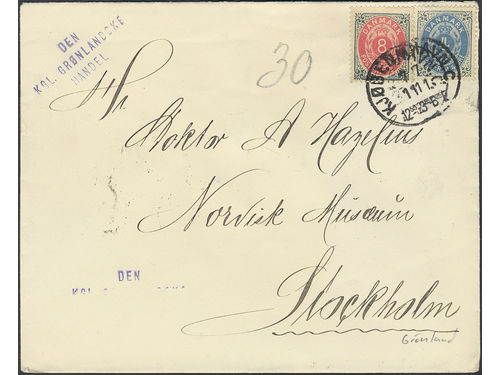 DEN
KGL. GRØNLANDSKE
HANDEL
30
DANMARK
8
DANMARK
KJØBENHAVN
Hr.
Doktor A Hazelius
Nordisk Museum
DEN
Stockholm
Grönland